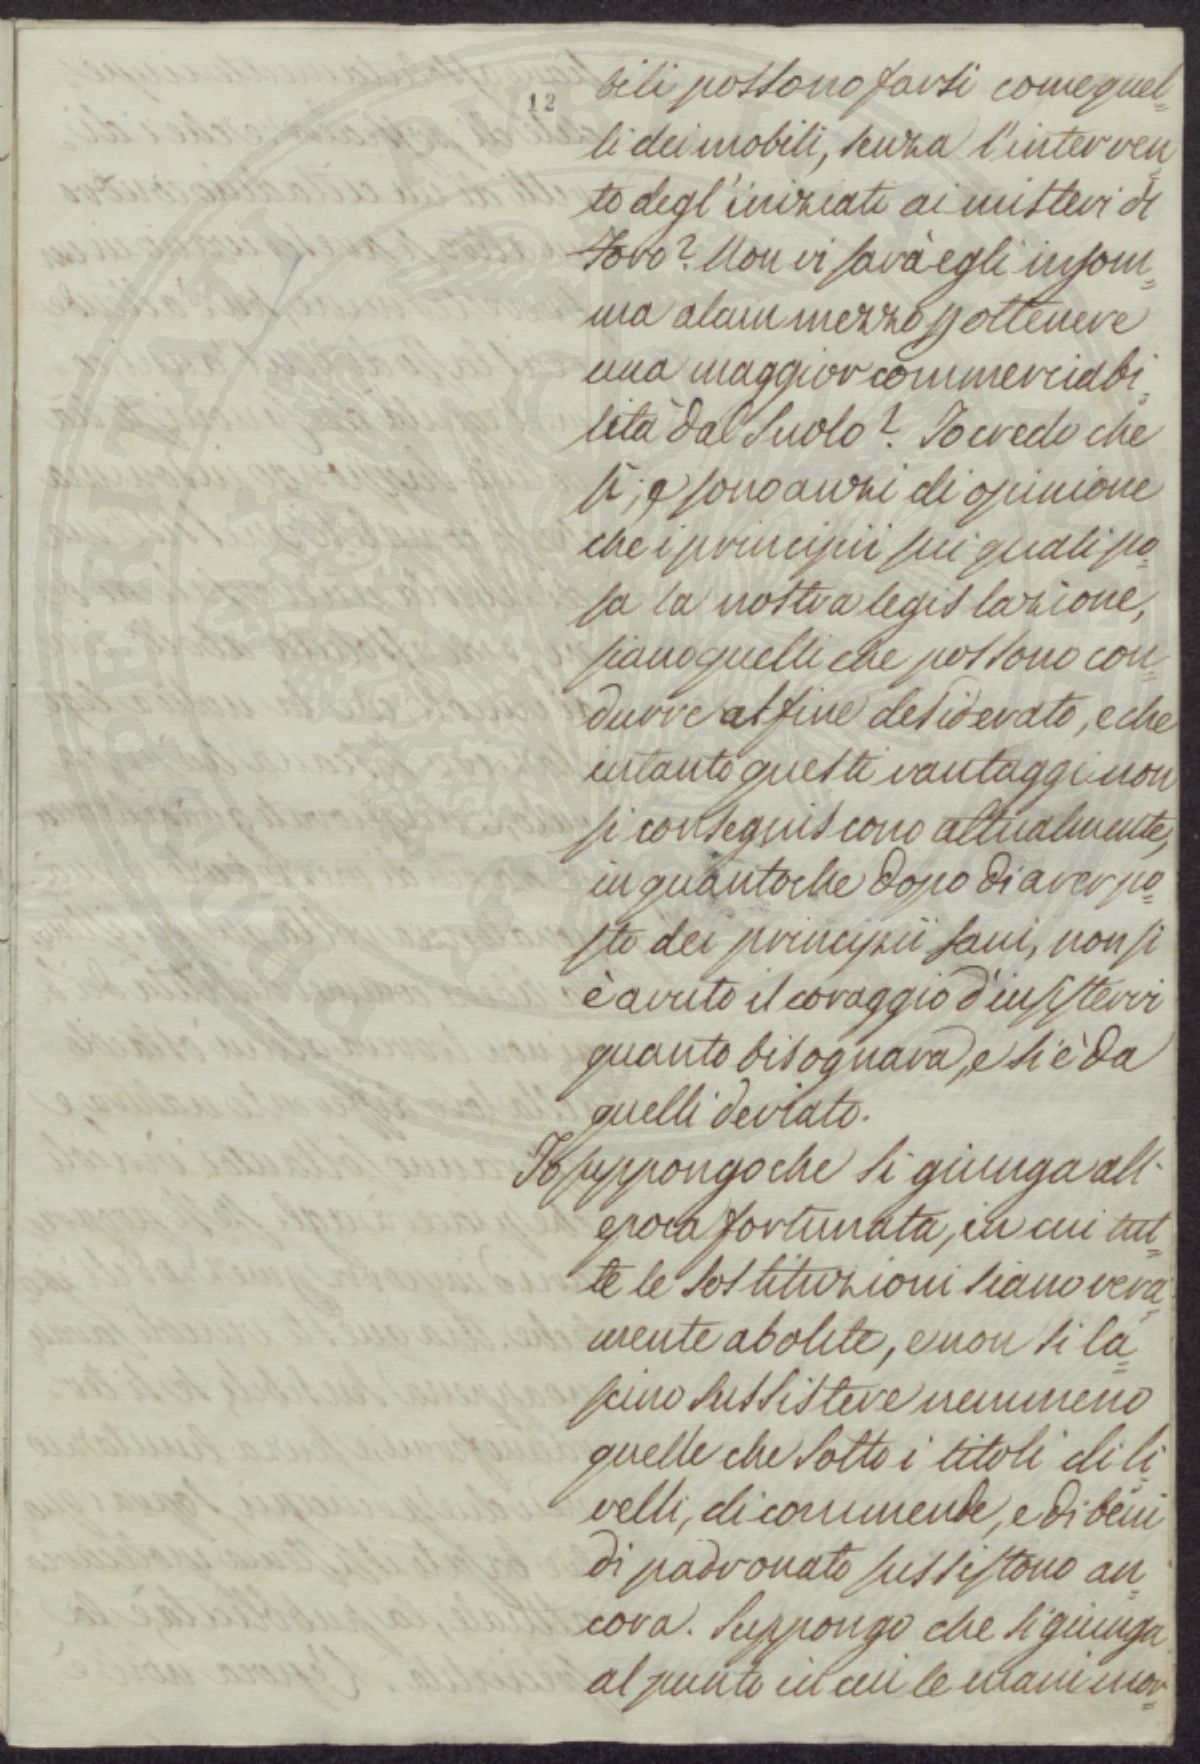 12
bili possono farsi come quel=
li dei mobili, senza l'interven=
to degl'iniziati ai misteri di
Foro? Non vi sarà egli insom=
ma alcun mezzo p ottenere
una maggior commerciabi=
lità dal suolo? Io credo che
si; e sono anzi di opinione
che i principii sui quali po=
sa la nostra legislazione,
siano quelli che possono con=
durre al fine desiderato, e che
intanto questi vantaggi non
si conseguiscono attualmente,
in quantoche dopo di aver po=
sto dei principii sani, non si
è avuto il coraggio d'insistervi
quanto bisognava, e si è da
quelli deviato.
Io suppongo che si giunga all'
epoca fortunata, in cui tut=
te le sostituzioni siano vera=
mente abolite, e non si la=
scino sussistere nemmeno
quelle che sotto i titoli di li=
velli, di commende, e di beni
di padronato sussistono an=
cora. Suppongo che si giunga
al punto in cui le mani mor=